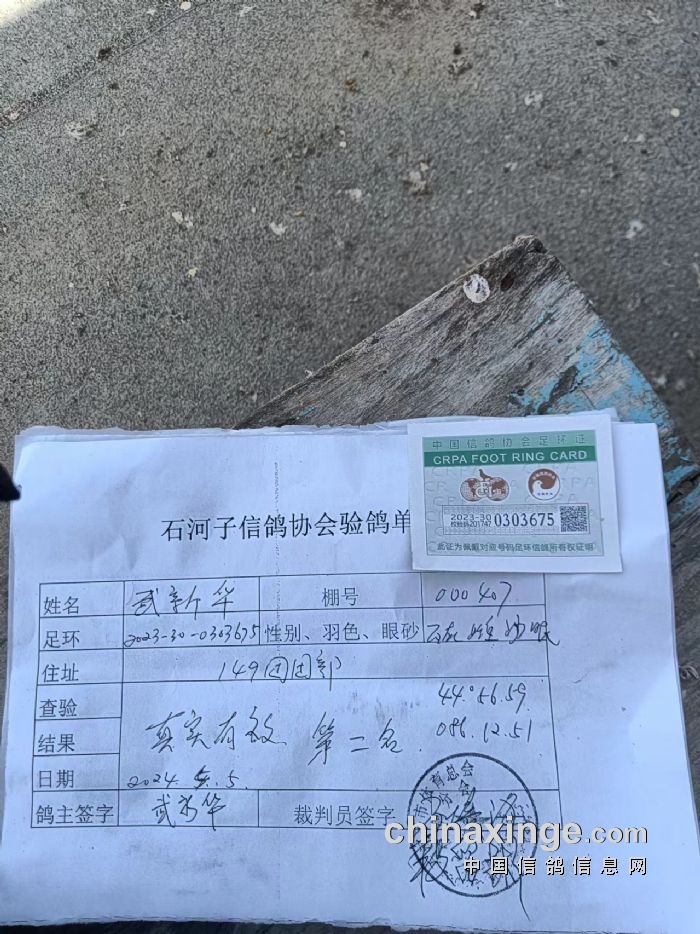 中国信鸽协会足环证
CRPA FOOT RING CARD
2023-30
校验码201747
0303675
此证为佩戴对应号码足环信鸽所有权证明
石河子信鸽协会验鸽单
姓名 武新华 棚号 000407
足环 2023-30-0303675 性别、羽色、眼砂 砂眼
住址 149团团部
查验 44.56.59
结果 真实有效 第二名 086.12.51
日期 2024.5.5.
鸽主签字 武新华 裁判员签字
育总会
chinaxinge.com
中国信鸽信息网